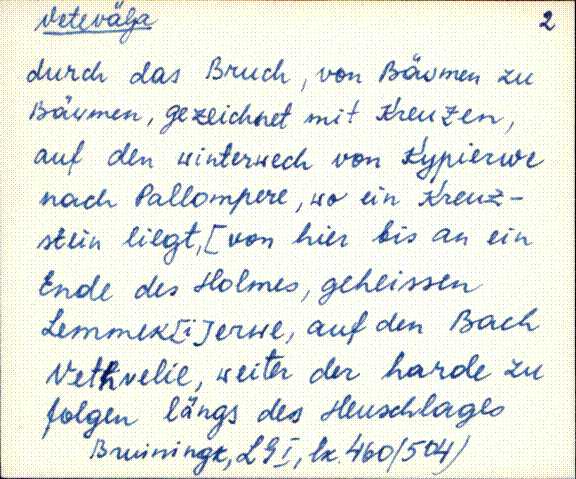 Vetevälja 2
durch das Bruch, von Bäumen zu
Bäumen, gezeichnet mit Kreuzen,
auf den winterwech von Kypierwe
nach Pallompere, wo ein Kreuz-
stein liegt, [von hier bis an ein
Ende des Holmes, geheissen
Lemmek[i]erwe, auf den Bach
Vethvelie, weiter der harde zu
folgen längs des Heuschlages
Bruiningk, LGI, lk. 460 (504)